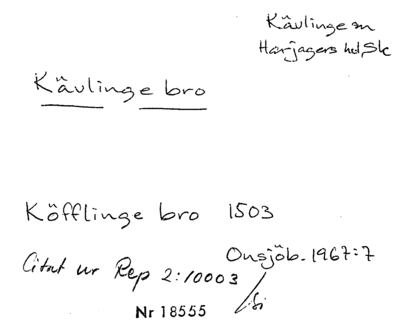 Kävlinge sn
Harjagers hd, Sk
Kävlinge bro
Köfflinge bro 1503
Onsjöb. 1967:7
Citat ur Rep 2:10003
Nr 18555